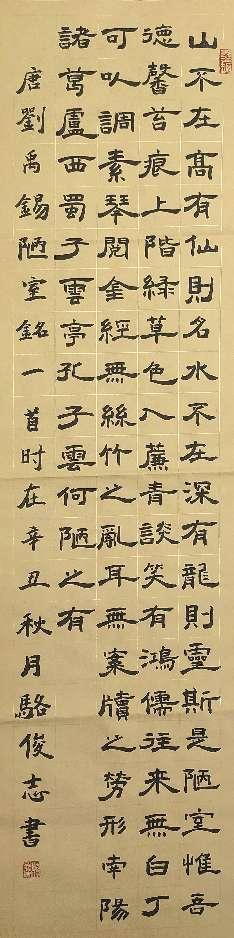 山不在高有仙則名水不在深有龍則靈斯是陋室惟吾
德馨苔痕上階緑草色入簾青談笑有鴻儒往來無白丁
可以調素琴閱金經無絲竹之亂耳無案牘之勞形南陽
諸葛廬西蜀子雲亭孔子雲何陋之有
唐劉禹錫陋室銘一首时在辛丑秋月駱俊志書